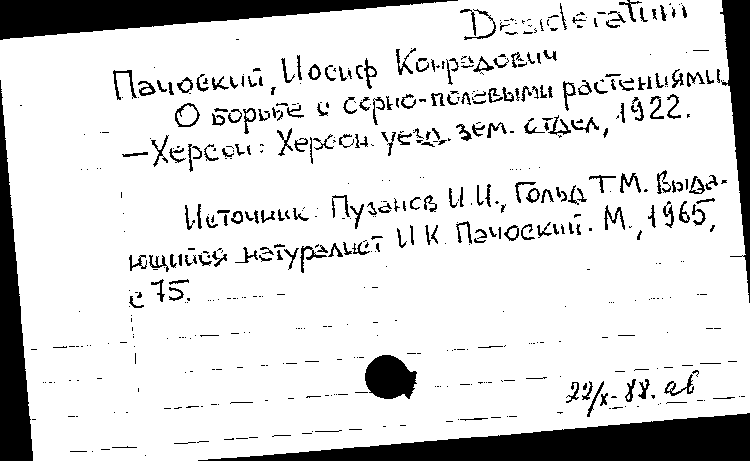 Desideratum
Пачоский, Иосиф Конрадович
О борьбе с сорно-полевыми растениями.
— Херсон: Херсон. уезд. зем. отдел, 1922.
Источник: Пузанов И.И., Гольд Т.М. Выда-
ющийся натуралист И.К. Пачоский. М., 1965,
с 75.
22/X-88. ав